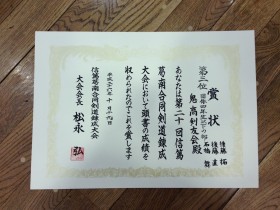 賞状
第三位
後藤 拓
後藤 直
石橋 舞
鬼高剣友会殿
あなたは第二十回信篤
葛南合同剣道錬成
大会において頭書の成績を
収められたのでこれを賞します
平成二六年十月
信篤葛南合同剣道錬成大会
大会会長 松永